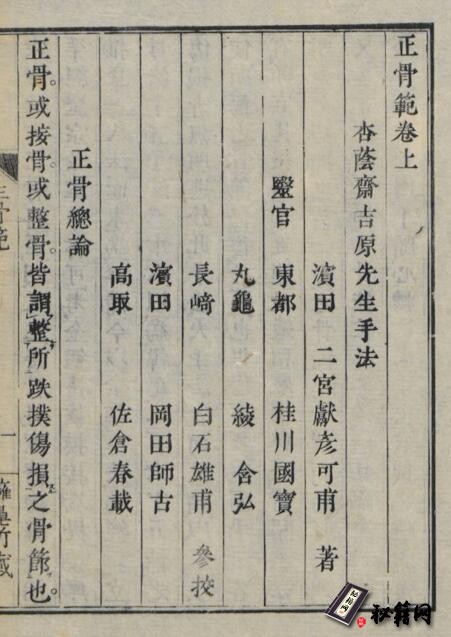 正骨範卷上
杏蔭齋吉原先生手法
濱田 二宮獻彦可甫 著
毉官 東都 桂川國寶
丸龜 綾 舎弘
長﨑 白石雄甫 參挍
濱田 岡田師古
高取 佐倉春載
正骨總論
正骨。或按骨。或整骨。皆謂整所跌撲傷損之骨節也。
正骨範
一
秘籍网